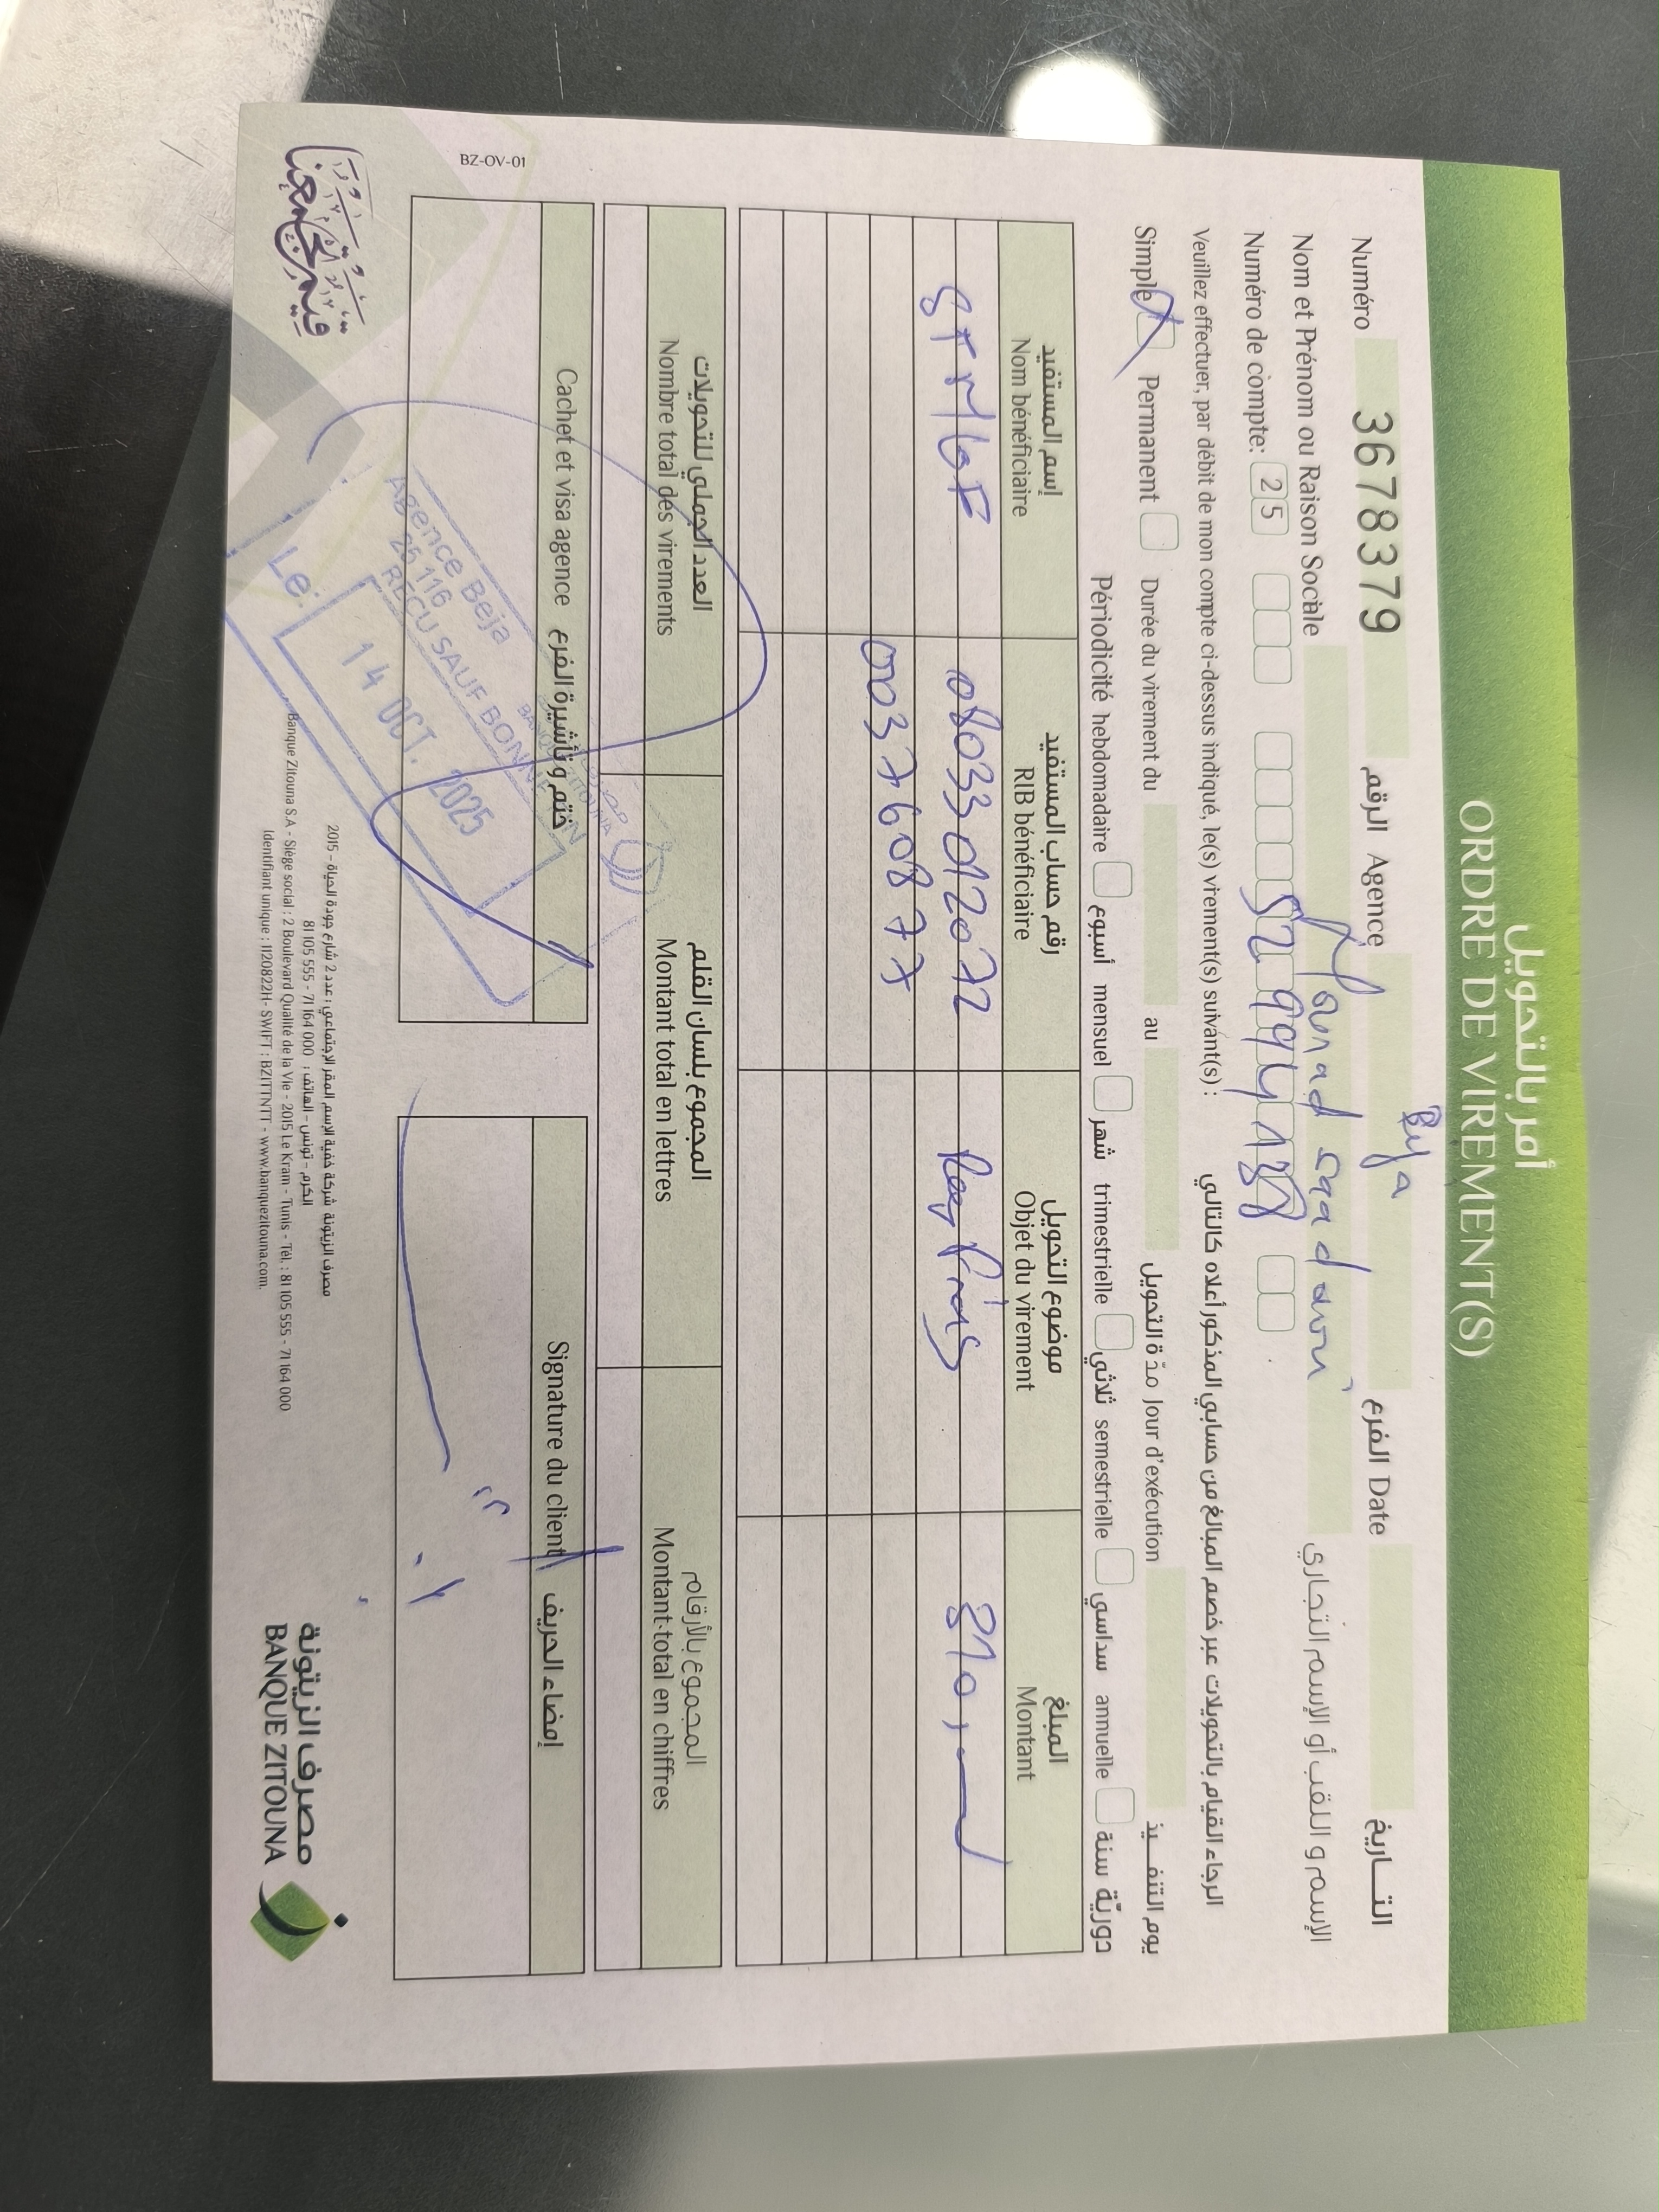 أمر بالتحويل
ORDRE DE VIREMENT(S)
Beja
Numéro 3678379 الرقم Agence الفرع Date التـــاريخ
Nom et Prénom ou Raison Sociale الإسم و اللقب أو الإسم التجاري
Numéro de compte: 25
Veuillez effectuer, par débit de mon compte ci-dessus indiqué, le(s) virement(s) suivant(s) : الرجاء القيام بالتحويلات عبر خصم المبالغ من حسابي المذكور أعلاه كالتالي
Simple Permanent Durée du virement du au مدّة التحويل Jour d'exécution يوم التنفـــيذ
Périodicité hebdomadaire أسبوع mensuel شهر trimestrielle ثلاثي semestrielle سداسي annuelle سنة دوريّة
إسم المستفيد رقم حساب المستفيد موضوع التحويل المبلغ
Nom bénéficiaire RIB bénéficiaire Objet du virement Montant
08033012072 810,
003760877
العدد الجملي للتحويلات المجموع بلسان القلم المجموع بالأرقام
Nombre total des virements Montant total en lettres Montant total en chiffres
Cachet et visa agence ختم و تأشيرة الفرع Signature du client إمضاء الحريف
BANQUE ZITOUNA
Agence Beja
25 116
RECU SAUF BONNE FIN
Le: 14 OCT. 2025
BZ-OV-01
مصرف الزيتونة شركة خفية الإسم المقر الإجتماعي : عدد 2 شارع جودة الحياة - 2015
الكرم - تونس - الهاتف : 81 105 555 - 71 164 000
Banque Zitouna S.A - Siège social : 2 Boulevard Qualité de la Vie - 2015 Le Kram - Tunis - Tél. : 81 105 555 - 71 164 000
Identifiant unique : 1120822H- SWIFT : BZITTNTT - www.banquezitouna.com.
مصرف الزيتونة
BANQUE ZITOUNA